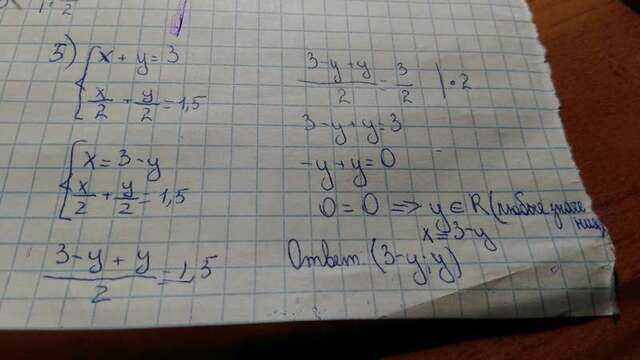 5) { x + y = 3
x/2 + y/2 = 1,5
{ x = 3 - y
x/2 + y/2 = 1,5
(3 - y + y)/2 = 1,5
(3 - y + y)/2 = 3/2 | · 2
3 - y + y = 3
- y + y = 0
0 = 0 => y ∈ R (любые значе
ния)
x = 3 - y
Ответ (3 - y; y)